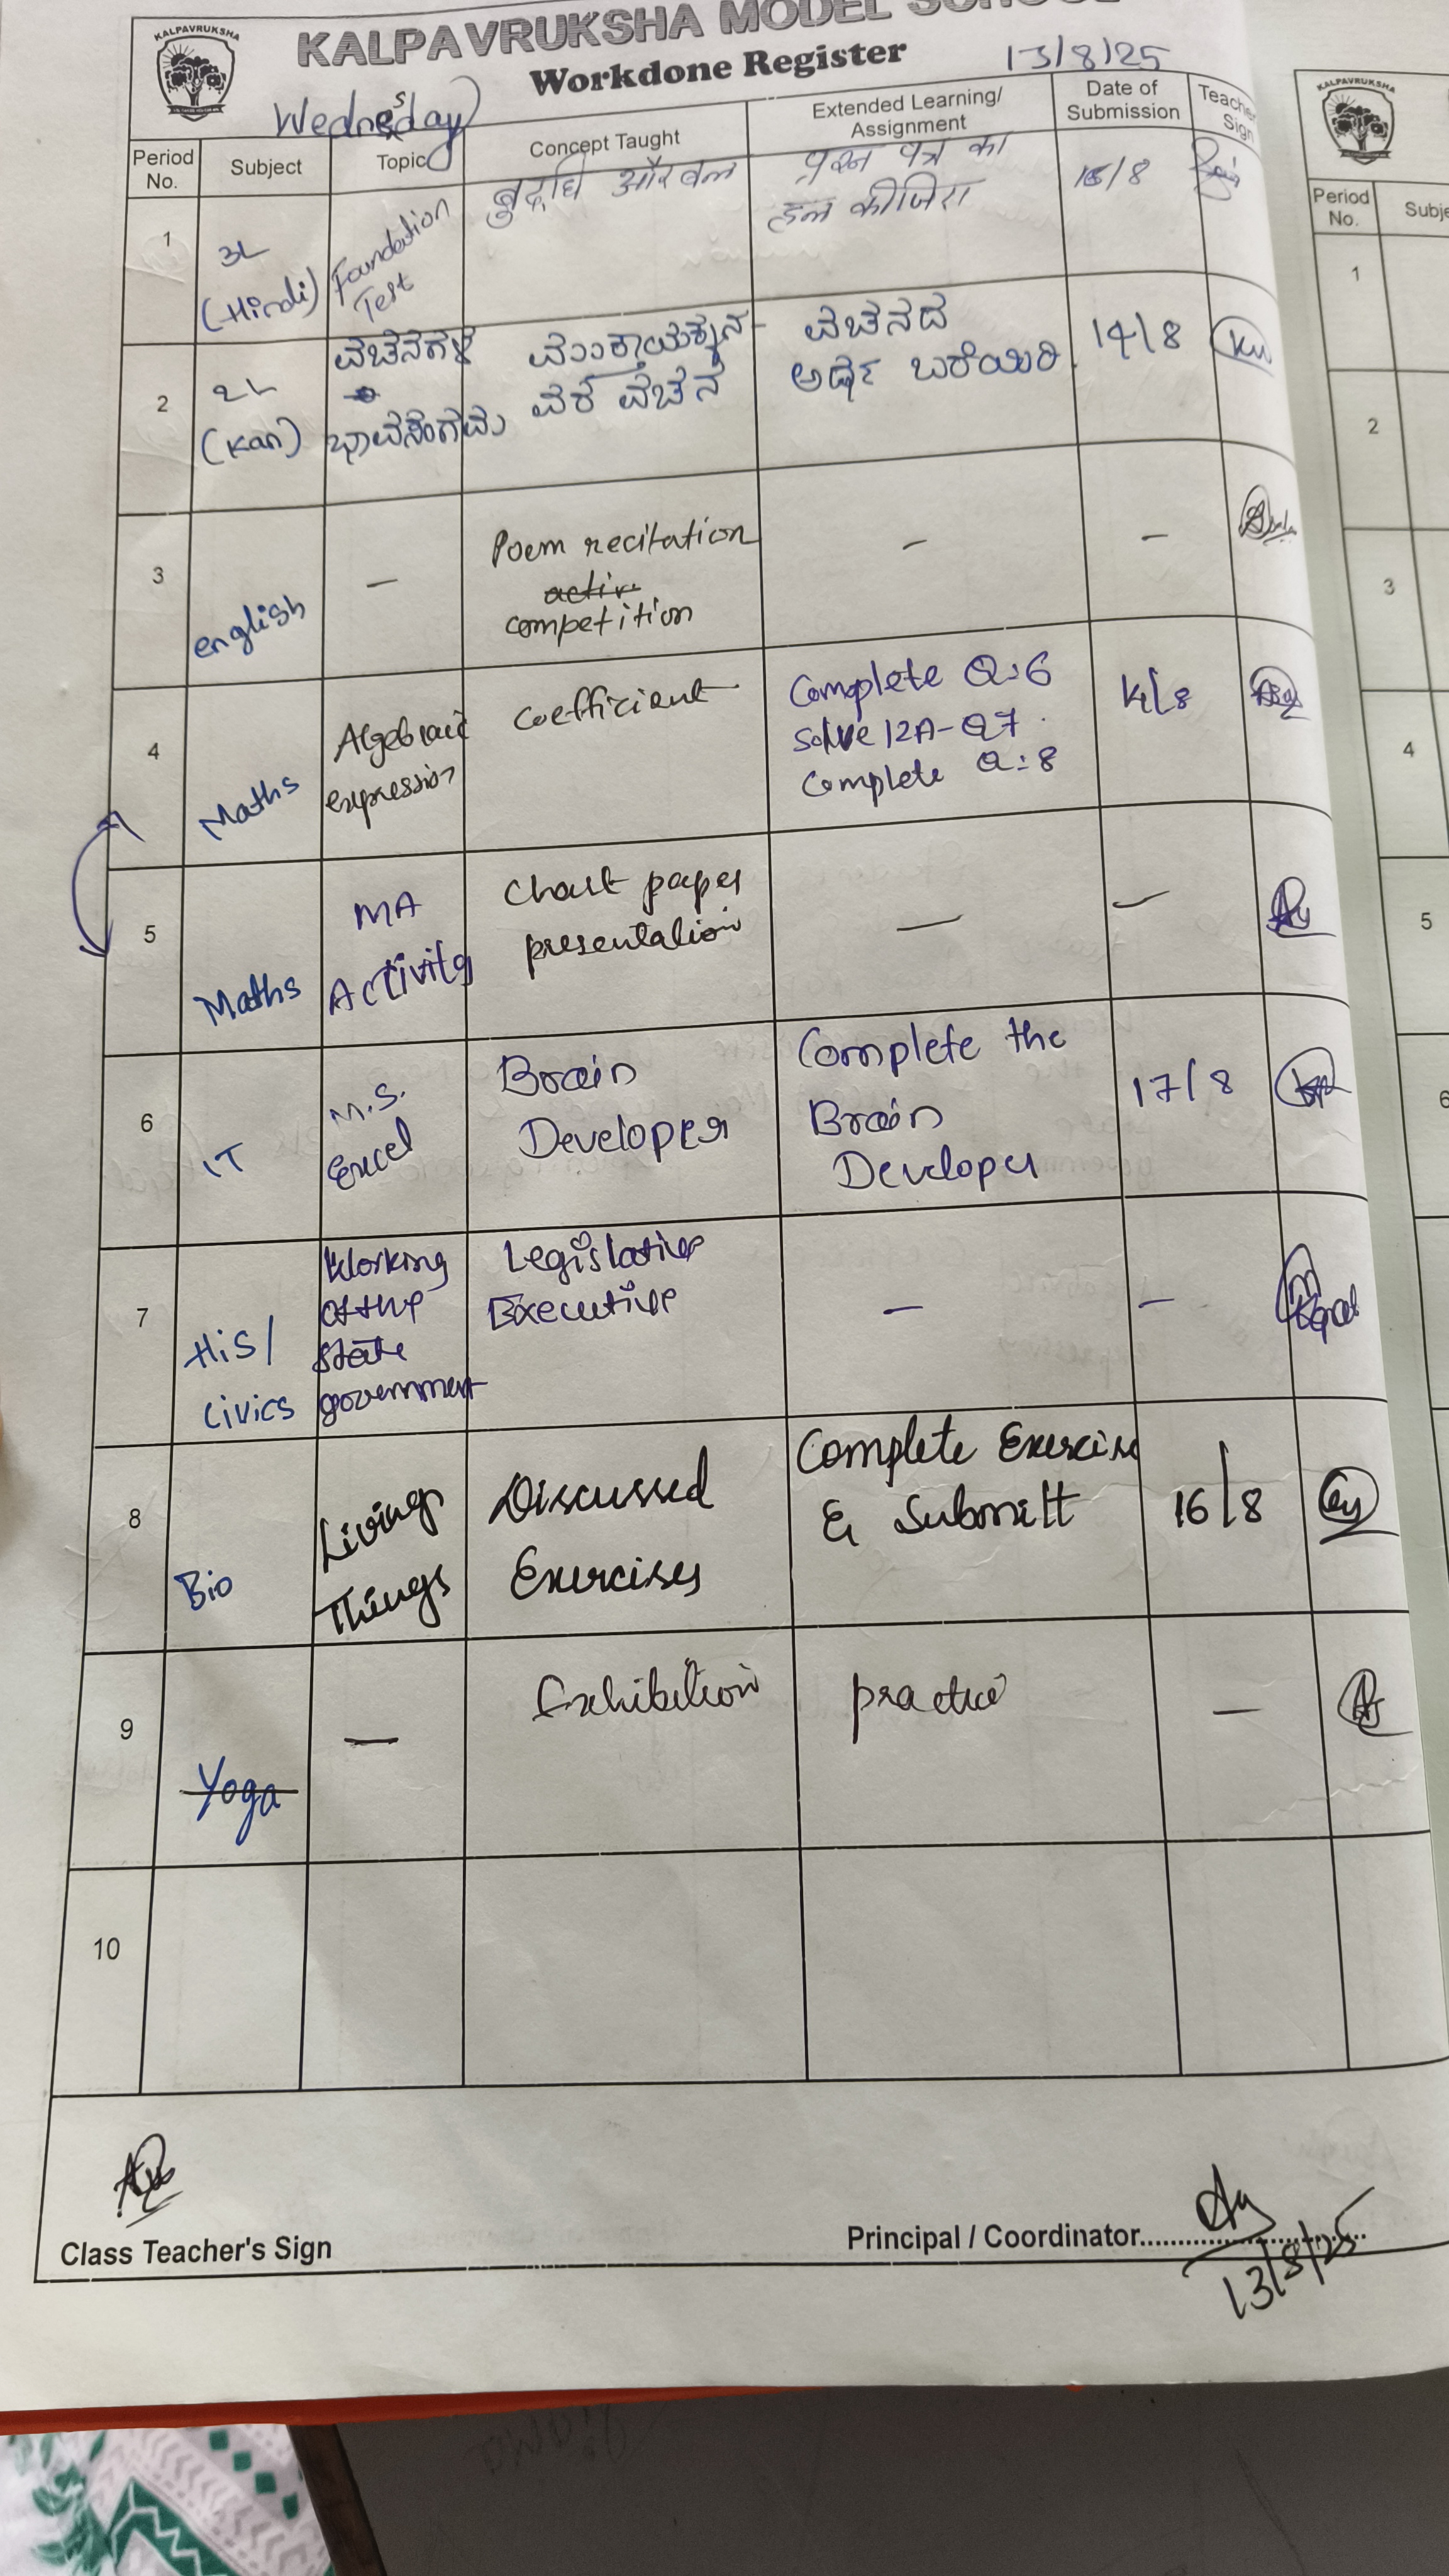 KALPAVRUKSHA
KALPAVRUKSHA MODEL SCHOOL
Workdone Register
13/8/25
Wednesday
Period No. Subject Topic Concept Taught Extended Learning/ Assignment Date of Submission Teacher Sign
1 3L (Hindi) Foundation Test बुद्धि और बल प्रश्न पत्र का हल कीजिए 16/8
2 2L (Kan) ವಚನಗಳ ಭಾವಸಂಗಮ ವಚನ ವಚನದ ಅರ್ಥ ಬರೆಯಿರಿ. 14/8
3 english — Poem recitation competition — —
4 Maths Algebraic expression Coefficient Complete Q:6
Solve 12A-Q7.
Complete Q:8 14/8
5 Maths MA Activity Chart paper presentation — —
6 IT M.S. Excel Brain Developer Complete the Brain Developer 17/8
7 His/ Civics Working of the state government Legislative Executive — —
8 Bio Living Things Discussed Exercises Complete Exercise & Submitt 16/8
9 Yoga — Exhibition practice —
10
Class Teacher's Sign
Principal / Coordinator
13/8/25
KALPAVRUKSHA
Period No. Subje
1
2
3
4
5
6